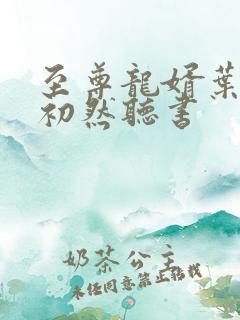 至尊龍婿葉
初然聽書
奶茶公主
未经同意禁止转载